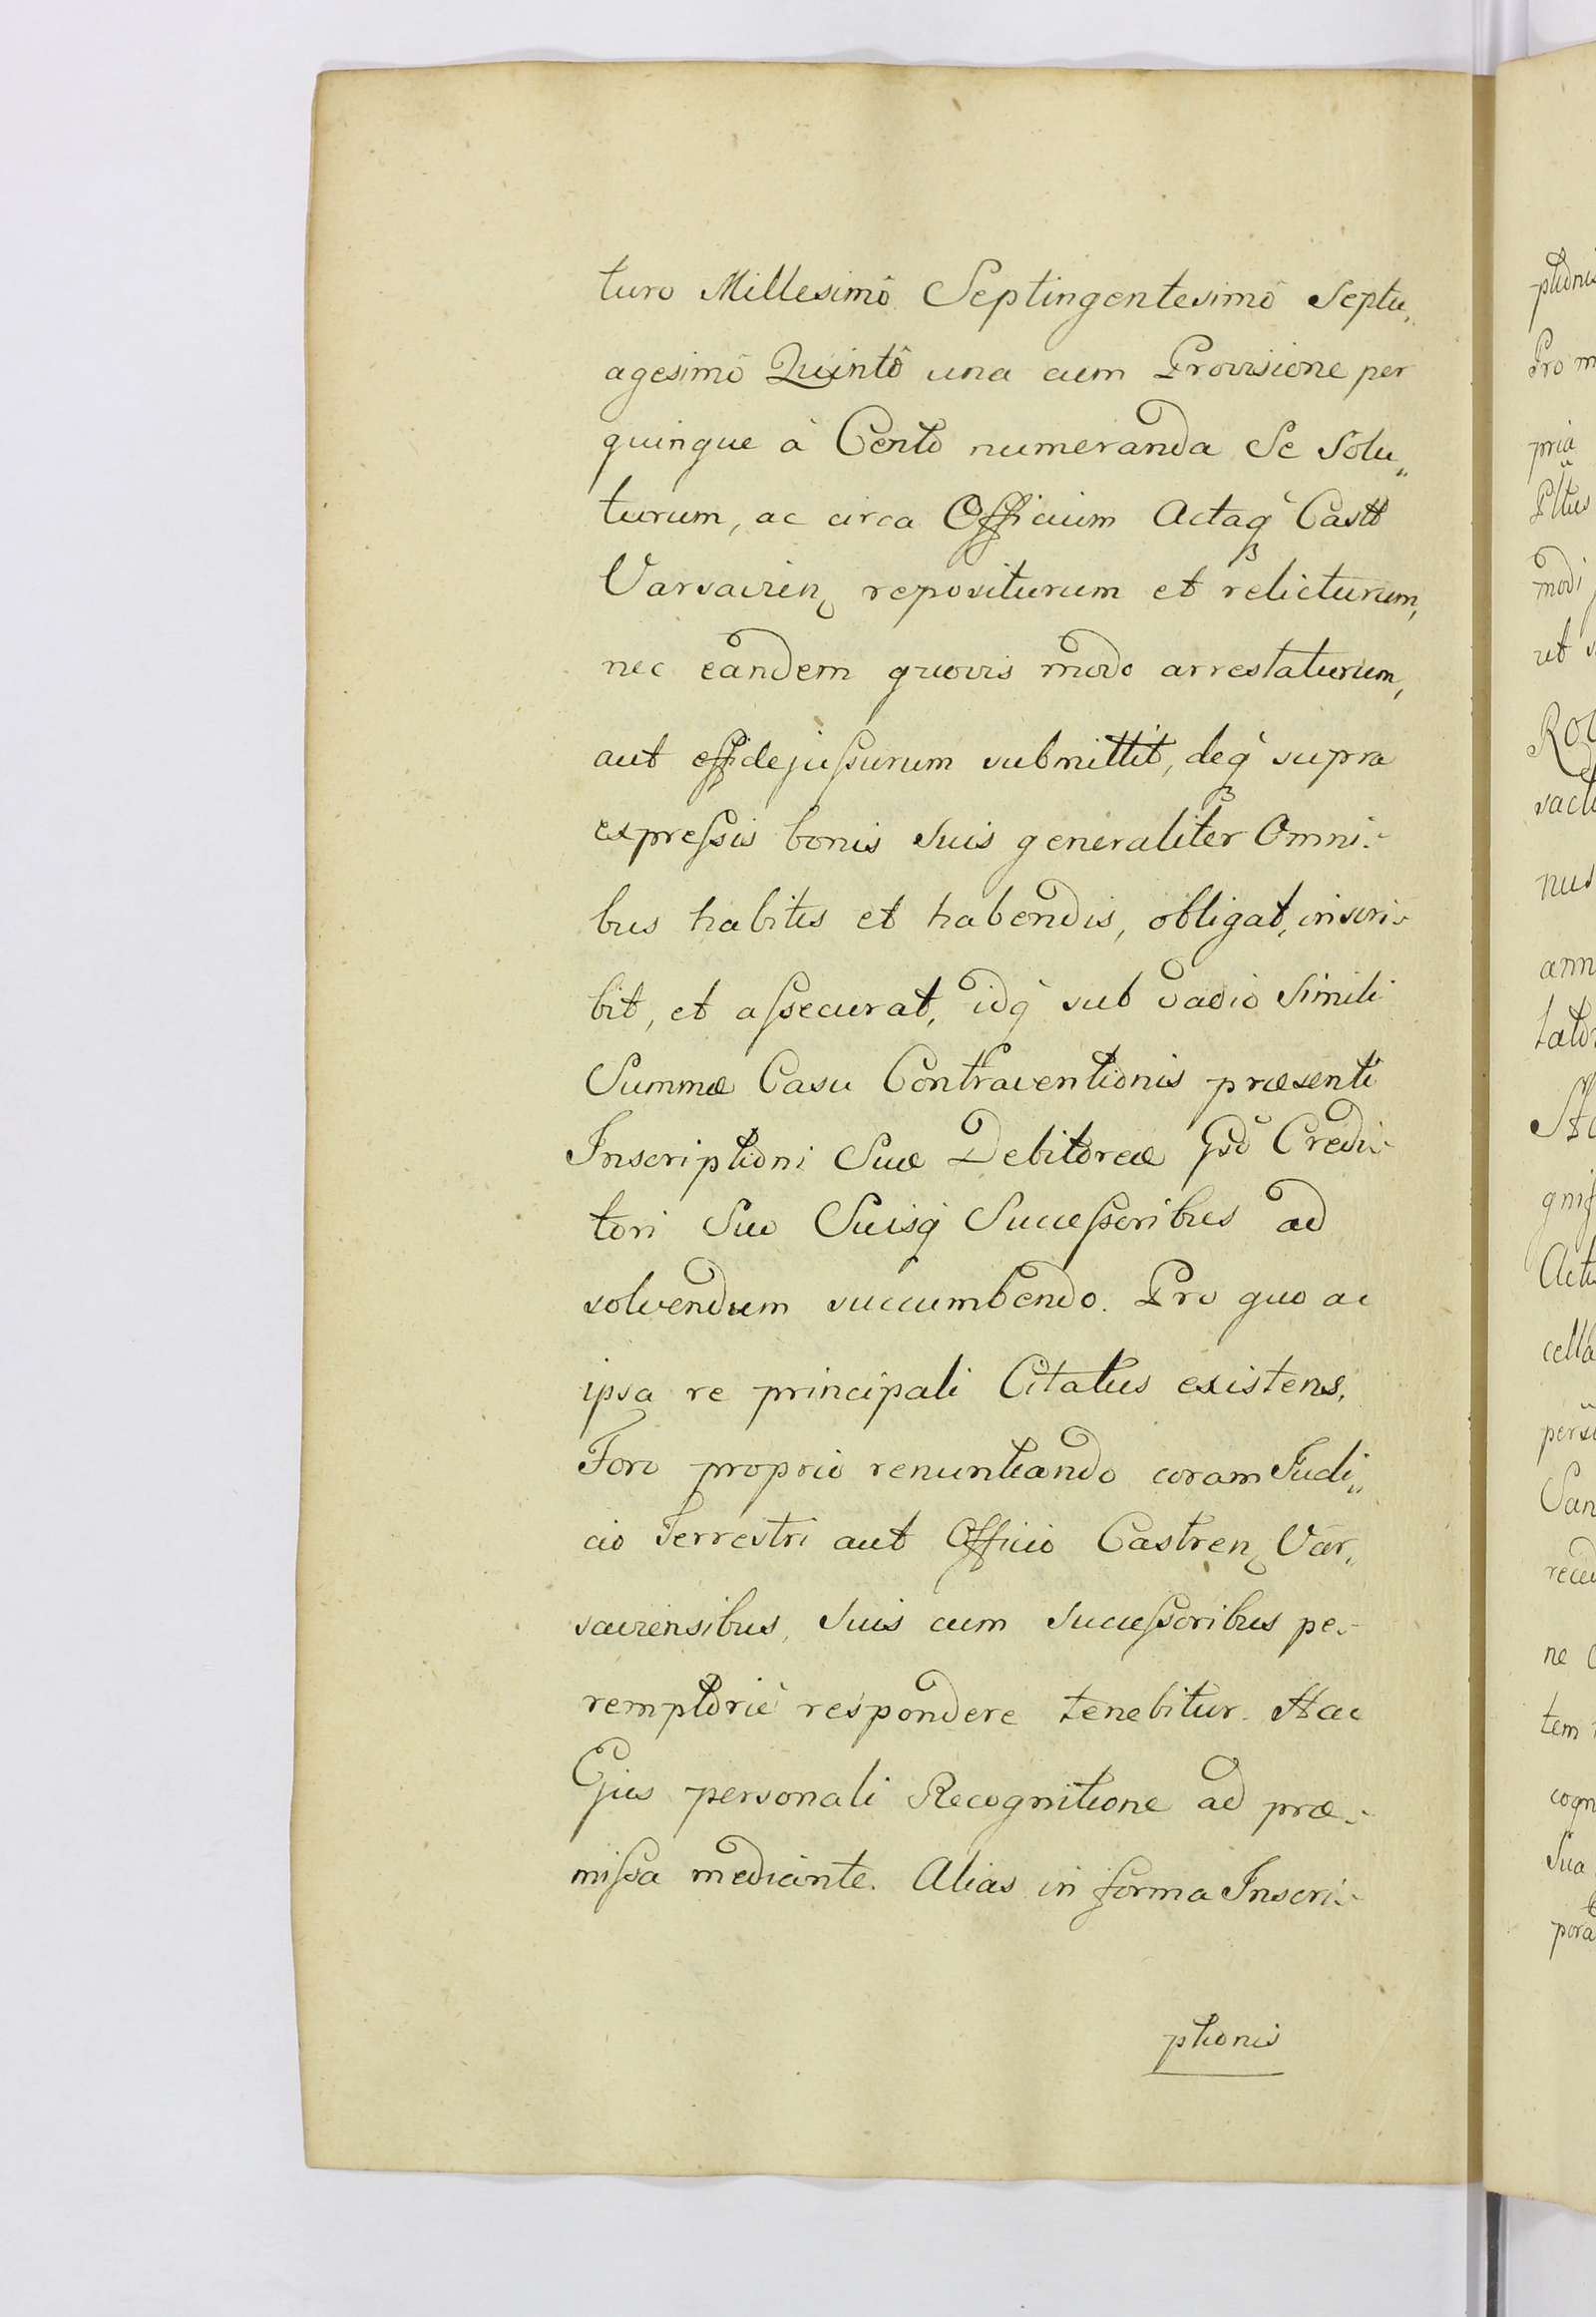 turo Millesimô Septingentesimô Septu„
agesimô Quintô una cum Provisione per
quinque à Cento numeranda Se Solu„
turum, ac circa Officium Actaq̀ Castt
Varsavien repositurum et relicturum,
nec eandem quovis modo arrestaturum,
aut effidejuſsurum submittit, deq̀ supra
expreſsis bonis suis generaliter Omni-
bus habitis et habendis, obligat, inscri-
bit, et aſsecurat, idq̀ sub vadio Simili
Summæ Casu Contraventionis præsenti
Inscriptioni Suæ Debitoreæ Gsō Credi-
tori Suo Suisq̀ Succeſsoribus ad
solvendum succumbendo. Pro quo ac
ipsa re principali Citatus existens,
Foro proprio renuntiando coram Judi„
cio Terrestri aut Officio Castren Var„
saviensibus, suis cum succeſsoribus pe-
remptoriè respondere tenebitur. Hac
Ejus personali Recognitione ad præ-
miſsa mediante. Alias in forma Inscri-
ptionis
ptionis
Pro m
pria
modi
ut
sactu
nus
ann
tator
Ac
Actu
cella
perso
San
ne
tem
cogn
Sua
pora